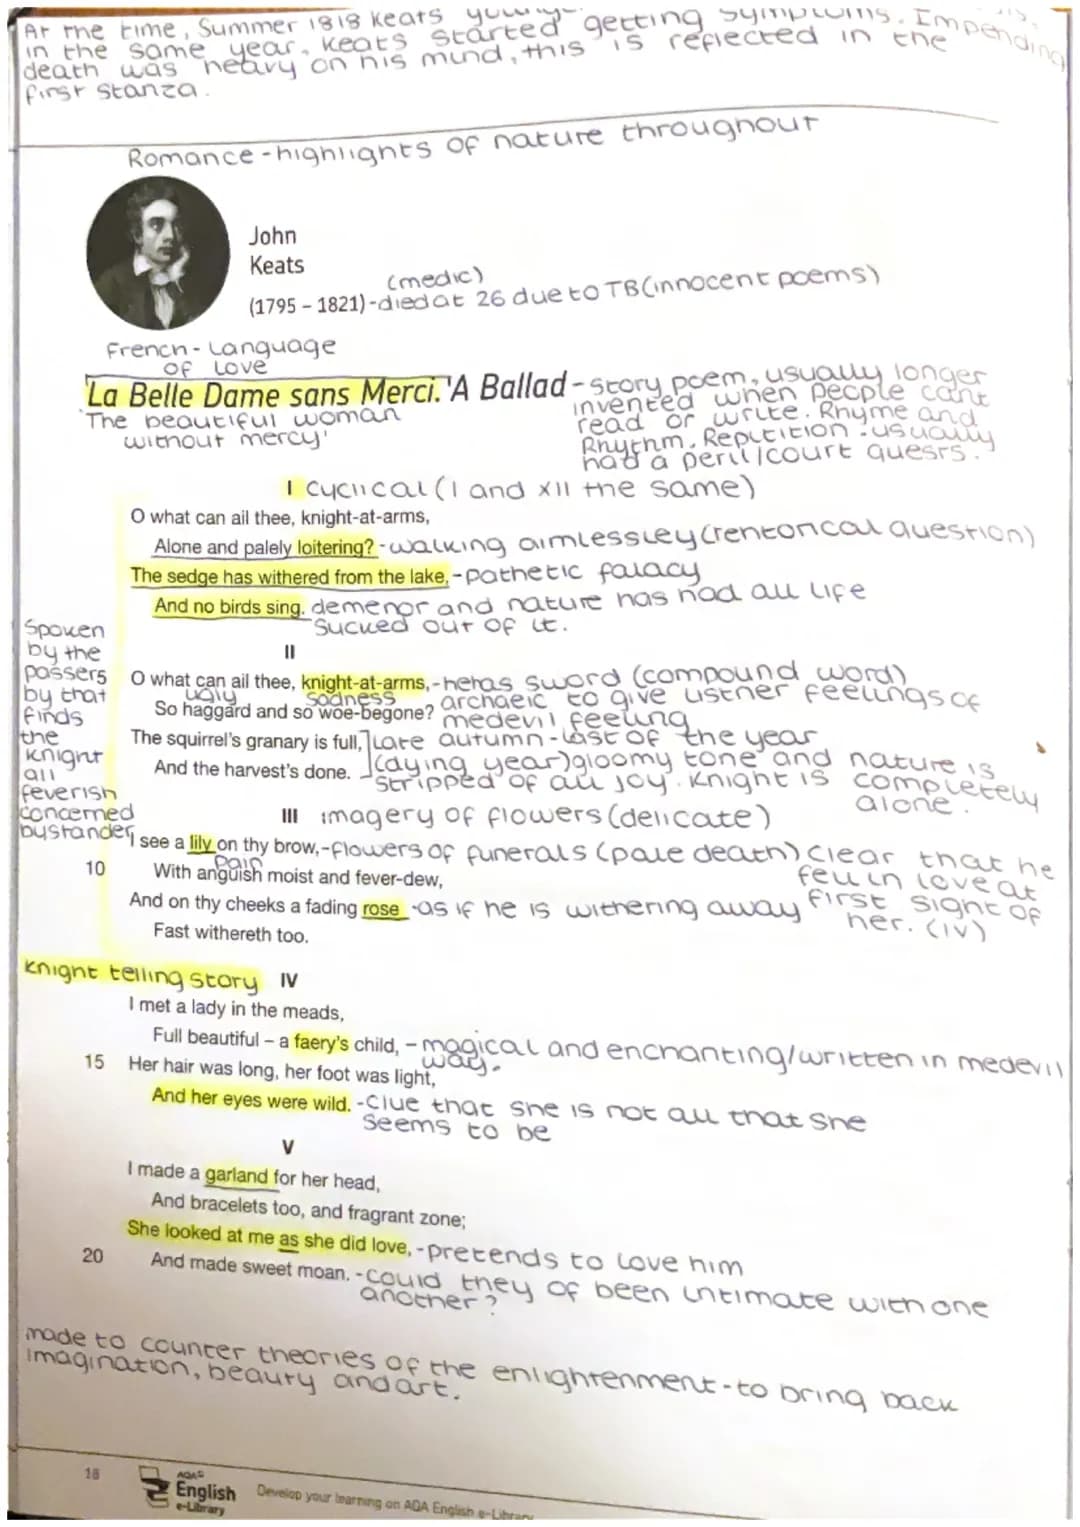 At the time, Summer 1818 Keats
in the same year. Keats started getting symptoms. Impending
death was heavy on his mind, this is reflected in the
first stanza.
Romance - highlights of nature throughout
John
Keats
(medic)
(1795 – 1821) - died at 26 due to TB (innocent poems)
French - Language
of love
'La Belle Dame sans Merci.' A Ballad - story poem, usually longer
invented when people cant
read or write. Rhyme and
Rhythm. Repitition. usually
had a peril/court quests.
'The beautiful woman
without mercy'
I cyclical (I and XII the same)
O what can ail thee, knight-at-arms,
Alone and palely loitering? - walking aimlessley (rentorical question)
The sedge has withered from the lake, - pathetic falacy
And no birds sing. demenor and nature has had all life
sucked out of it.
Spoken
by the
passers
by that
finds
the
knight
all
feverish
concerned
bystander
II
O what can ail thee, knight-at-arms, - heras sword (compound word)
archaeic to give listner feelings of
medevil feeling
ugly sadness
So haggard and so woe-begone?
The squirrel's granary is full, late autumn - last of the year
And the harvest's done. (dying year) gloomy tone and nature is
stripped of all joy. Knight is completely
alone.
III imagery of flowers (delicate)
I see a lily on thy brow, - flowers of funerals (pale death) clear that he
fell in love at
first sight of
her. (IV)
pain
10 With anguish moist and fever-dew,
And on thy cheeks a fading rose - as if he is withering away
Fast withereth too.
Knight telling story IV
I met a lady in the meads,
Full beautiful – a faery's child, - magical and enchanting/written in medevil
way.
15 Her hair was long, her foot was light,
And her eyes were wild. - Clue that she is not all that she
seems to be
V
I made a garland for her head,
And bracelets too, and fragrant zone;
She looked at me as she did love, - pretends to love him
20 And made sweet moan. - could they of been intimate with one
another?
made to counter theories of the enlightenment - to bring back
imagination, beauty and art.
18
AQA
English
e-Library
Develop your learning on AQA English e-Library